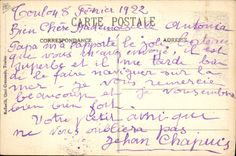 Toulon 8 février 1922
CARTE POSTALE
Bien Chère Mademoiselle Antonia
CORRESPONDANCE
Papa m'a rapporté le joli
que vous m'avez envoyé, il est
superbe et il me tarde bien
de le faire naviguer sur la
mer je vous remercie
beaucoup et je vous embrasse
bien bien fort.
Votre petit ami qui
ne vous oubliera pas
Jehan Chapuis